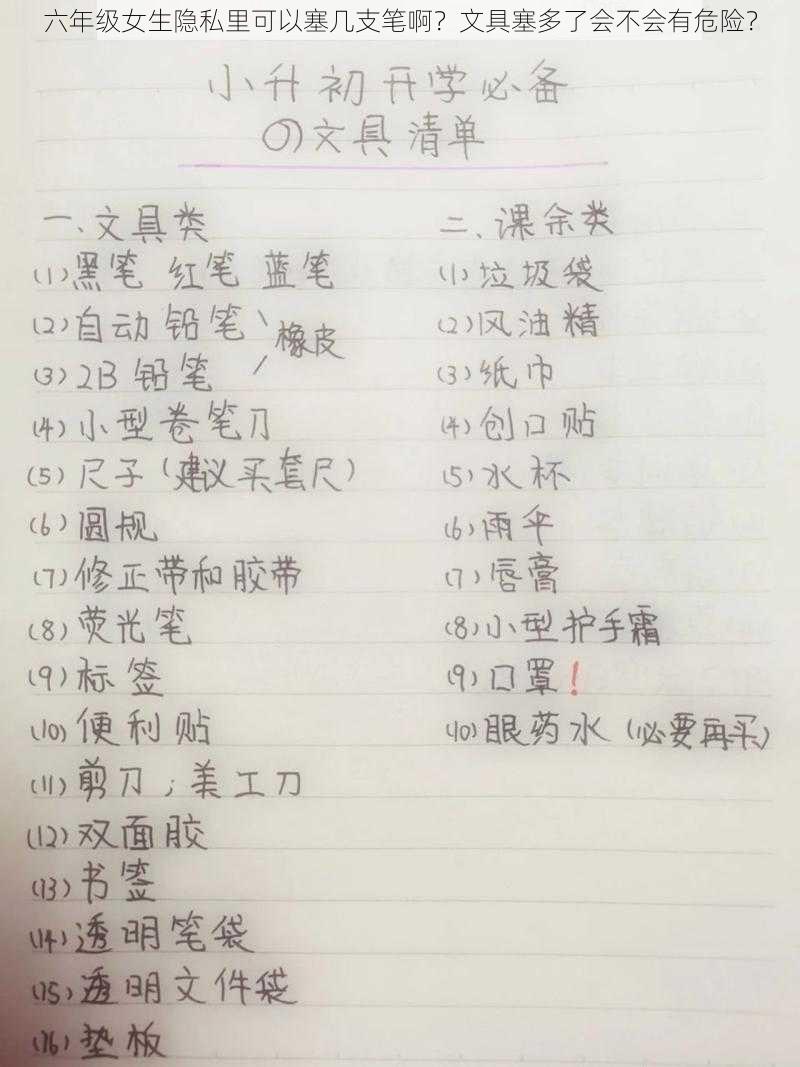 小升初开学必备
の文具清单
一、文具类
(1)黑笔 红笔 蓝笔
(2)自动铅笔
橡皮
(3)2B铅笔
(4)小型卷笔刀
(5)尺子(建议买套尺)
(6)圆规
(7)修正带和胶带
(8)荧光笔
(9)标签
(10)便利贴
(11)剪刀;美工刀
(12)双面胶
(13)书签
(14)透明笔袋
(15)透明文件袋
(16)垫板
二、课余类
(1)垃圾袋
(2)风油精
(3)纸巾
(4)创口贴
(5)水杯
(6)雨伞
(7)唇膏
(8)小型护手霜
(9)口罩!
(10)眼药水(必要再买)